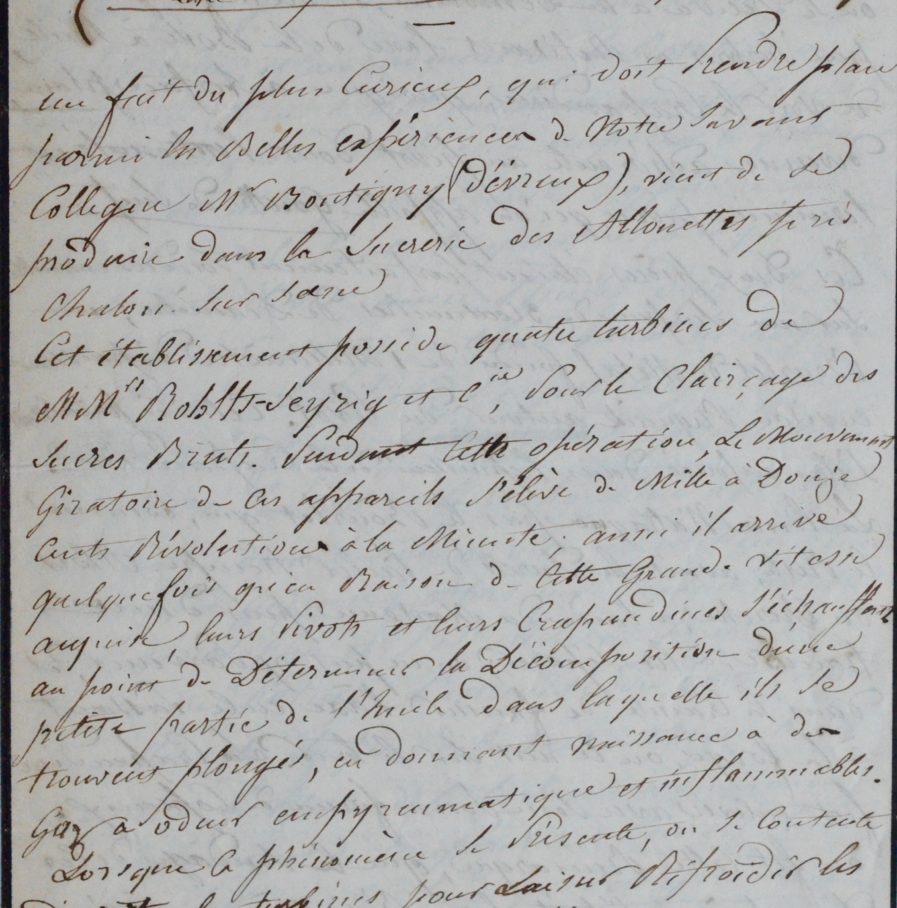 un fait du plus Curieux, qui doit Prendre place
parmi les Belles expériences de Notre Savant
Collegue Mr Boutigny (d'évreux), vient de se
produire dans la Sucrerie des Allouettes près
Chalon Sur Saone
Cet établissement possède quatre turbines de
MMrs Rohlfs-Seyrig et Cie, Pour le Clairçage des
Sucres Bruts. Pendant Cette opération, Le Mouvement
Giratoire de ces appareils S'élève de Mille à Douze
cents Révolutions à la Minute; aussi il arrive
quelquefois qu'en Raison de Cette Grande Vitesse
acquise, leurs Pivots et leurs Crapaudines S'échauffent
au point de Déterminer la Décomposition d'une
petite partie de l'huile dans laquelle ils se
trouvent plongés, en donnant naissance à des
Gaz a odeur empyreumatique et inflammables.
Lorsque ce phénomène se Présente, on se Contente
turbines pour Laisser Refroidir les